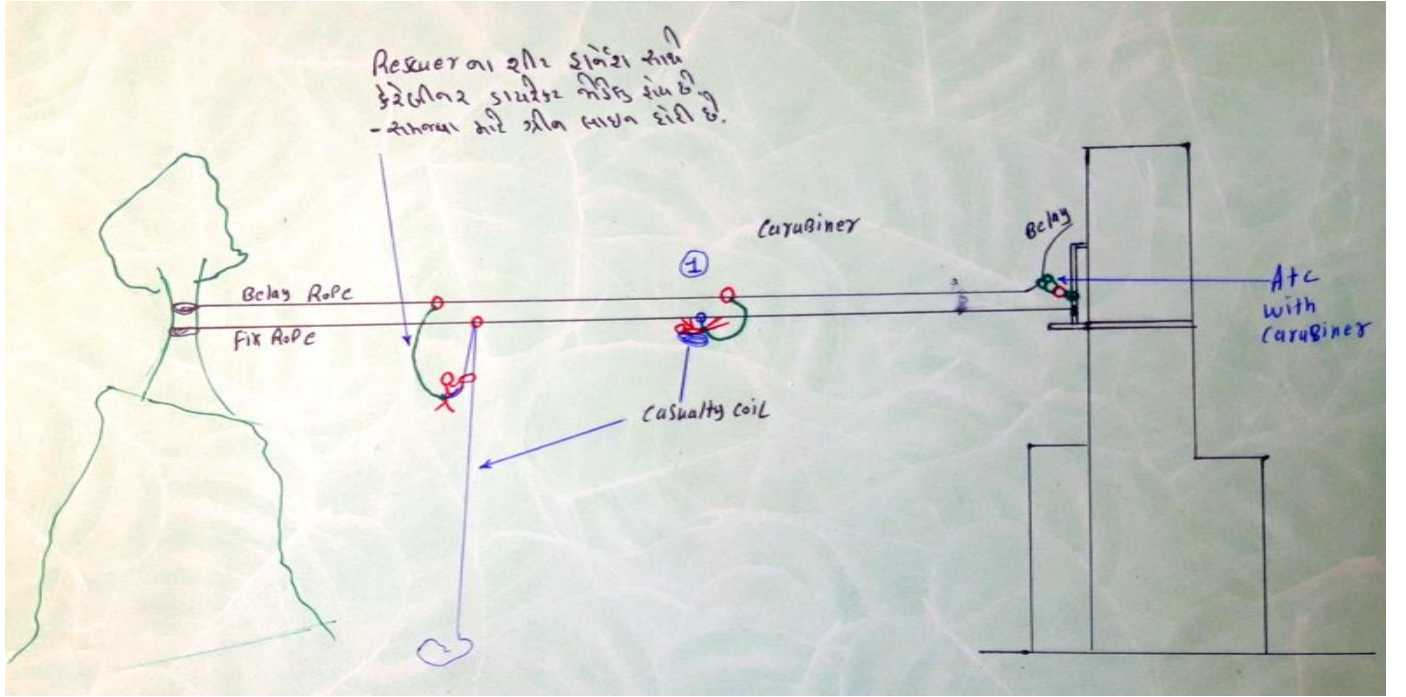 Rescuer ના શીટ હાર્નેશ સાથે
કેરેબીનર ડાયરેક્ટ જોડેલુ હોય છે.
- સમજવા માટે ગ્રીન લાઇન દોરી છે.
Carabiner
Belay
1
Atc
with
Carabiner
Belay Rope
Fix Rope
Casualty coil